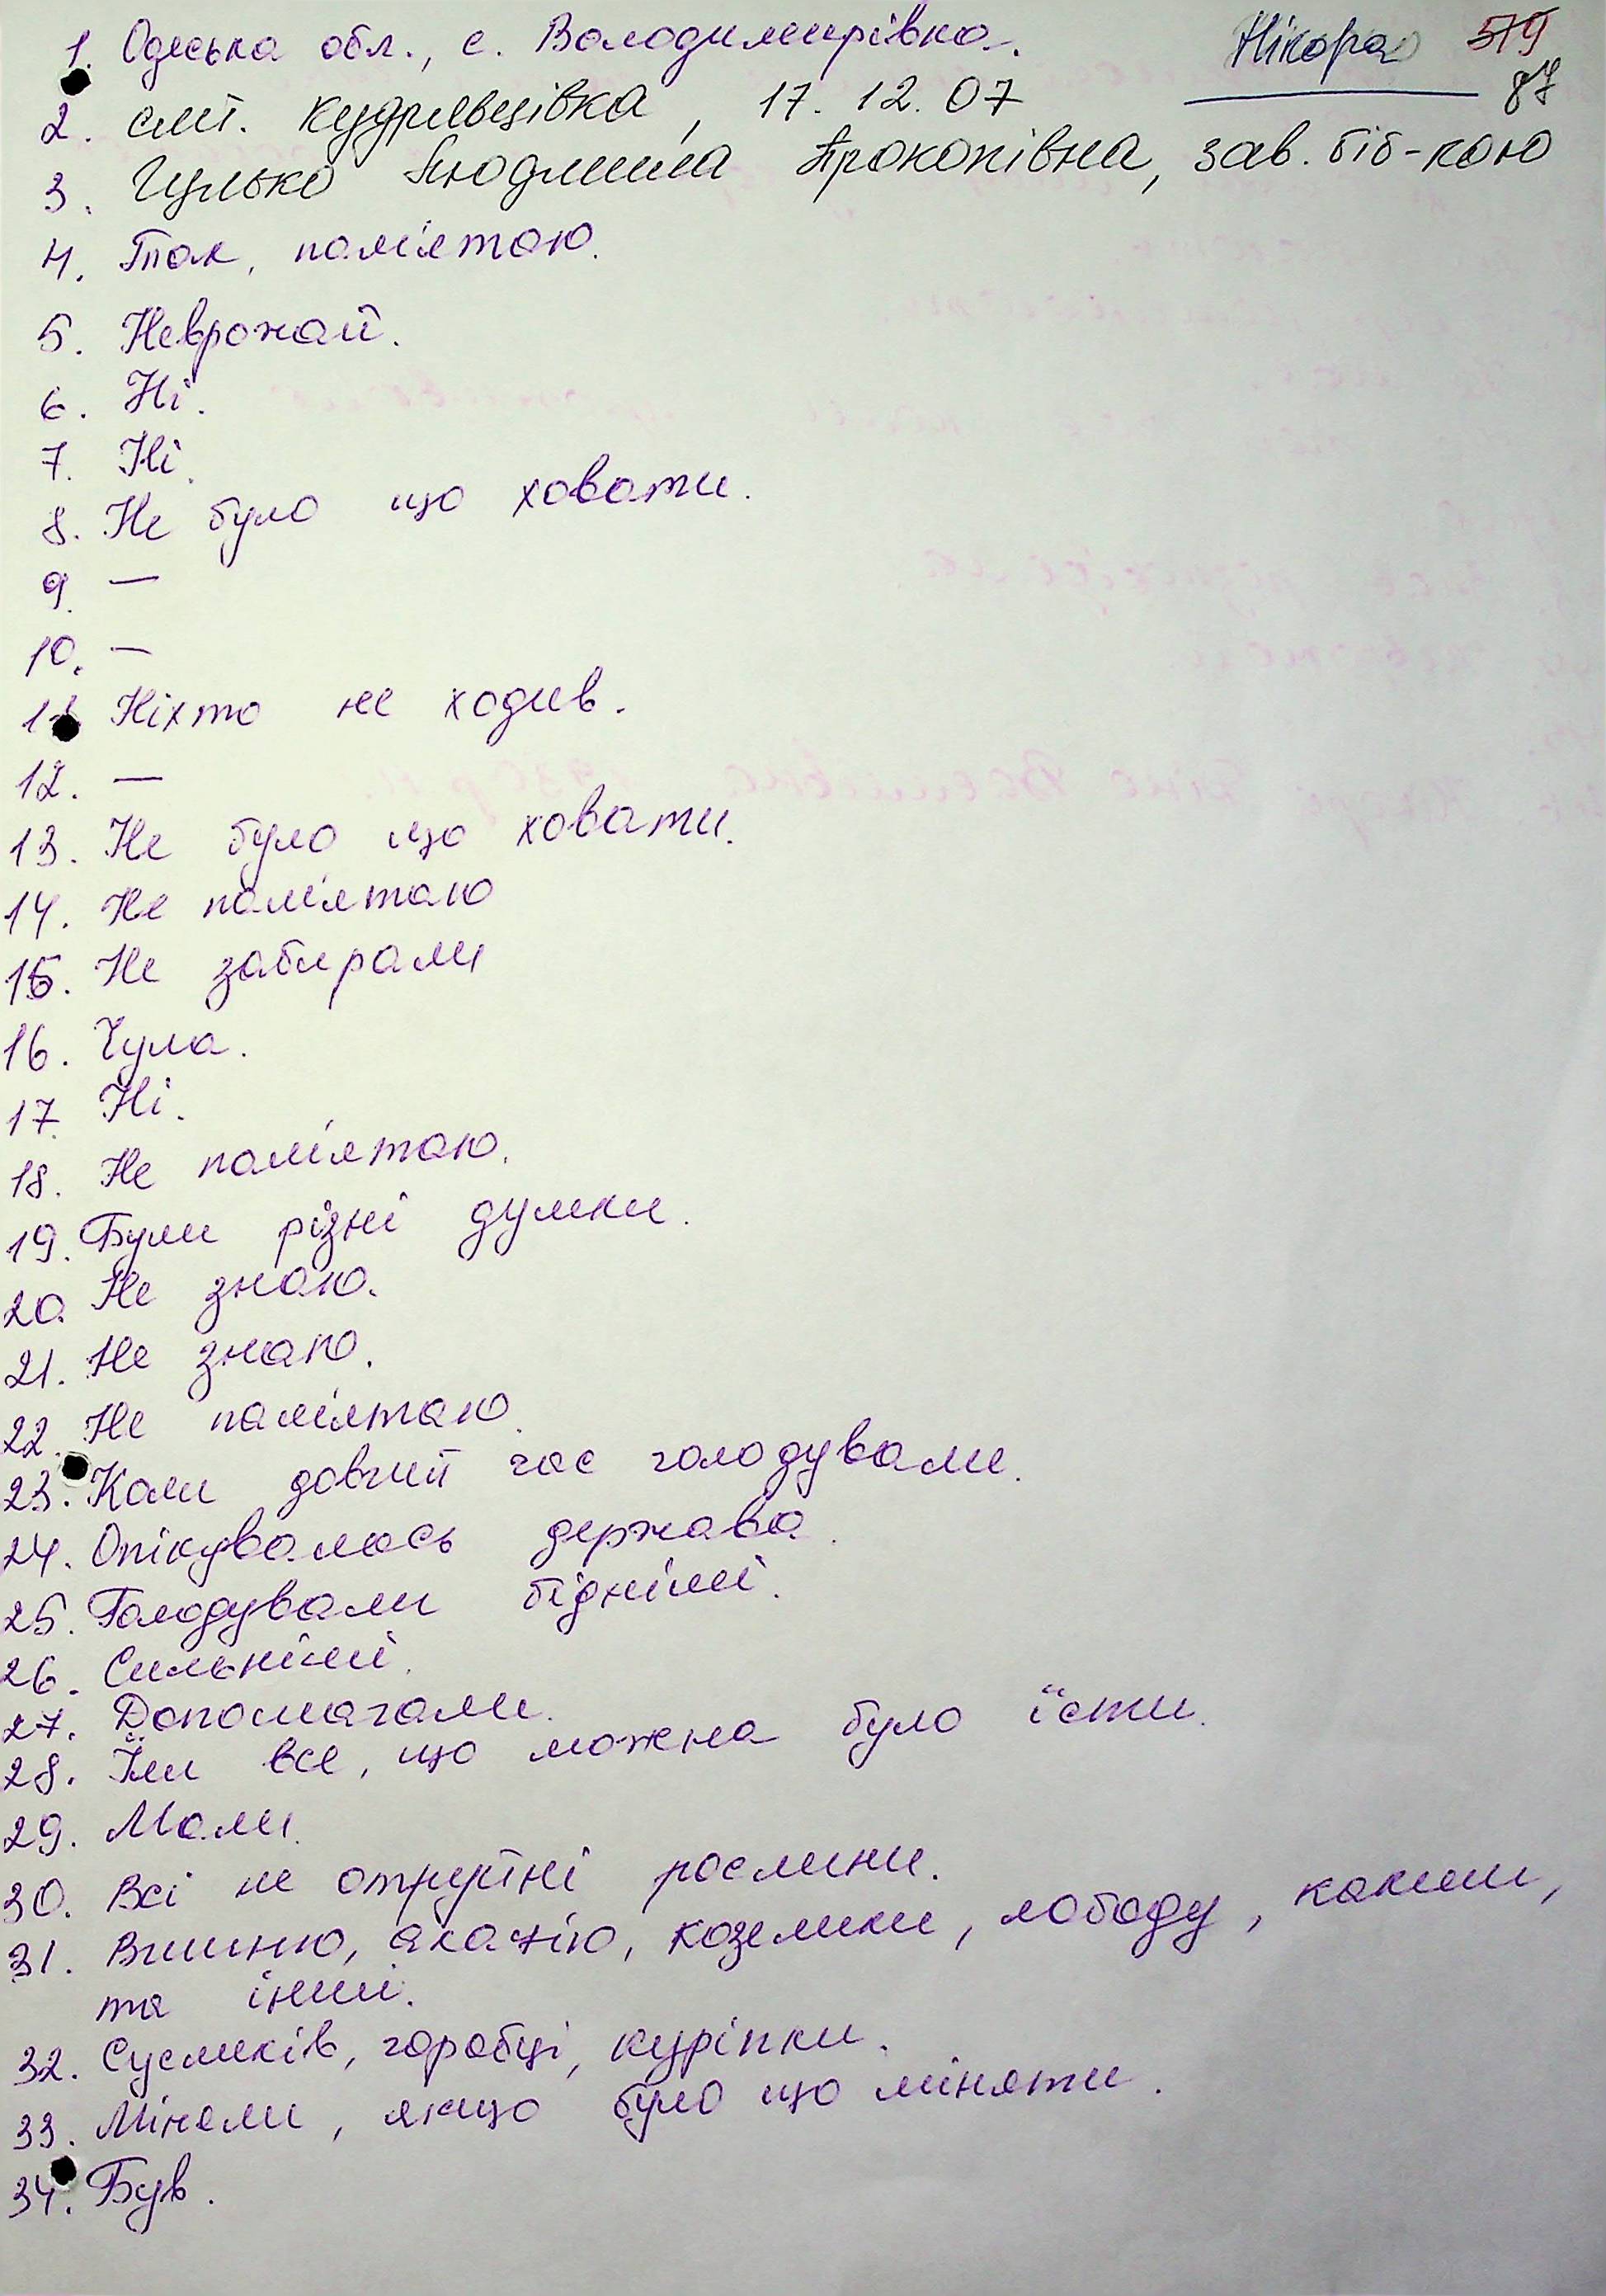 1. Одеська обл., с. Володимирівка.
Нікора 579
87
2. смт. Кудрявцівка, 17.12.07
3. Гулько Людмила Прокопівна, зав. біб-кою
4. Так, пам'ятаю.
5. Неврожай.
6. Ні.
7. Ні.
8. Не було що ховати.
9. —
10. —
11. Ніхто не ходив.
12. —
13. Не було що ховати.
14. Не пам'ятаю
15. Не забирали
16. Чула.
17. Ні.
18. Не пам'ятаю.
19. Були різні думки.
20. Не знаю.
21. Не знаю.
22. Не пам'ятаю.
23. Коли довгий час голодували.
24. Опікувалась держава.
25. Голодували бідніші.
26. Сильніші.
27. Допомагали.
28. Їли все, що можна було їсти.
29. Мали.
30. Всі не отруйні рослини.
31. Вишню, акацію, козелики, лободу, калачи,
та інші.
32. Сусликів, горобці, куріпки.
33. Міняли, якщо було що міняти.
34. Був.